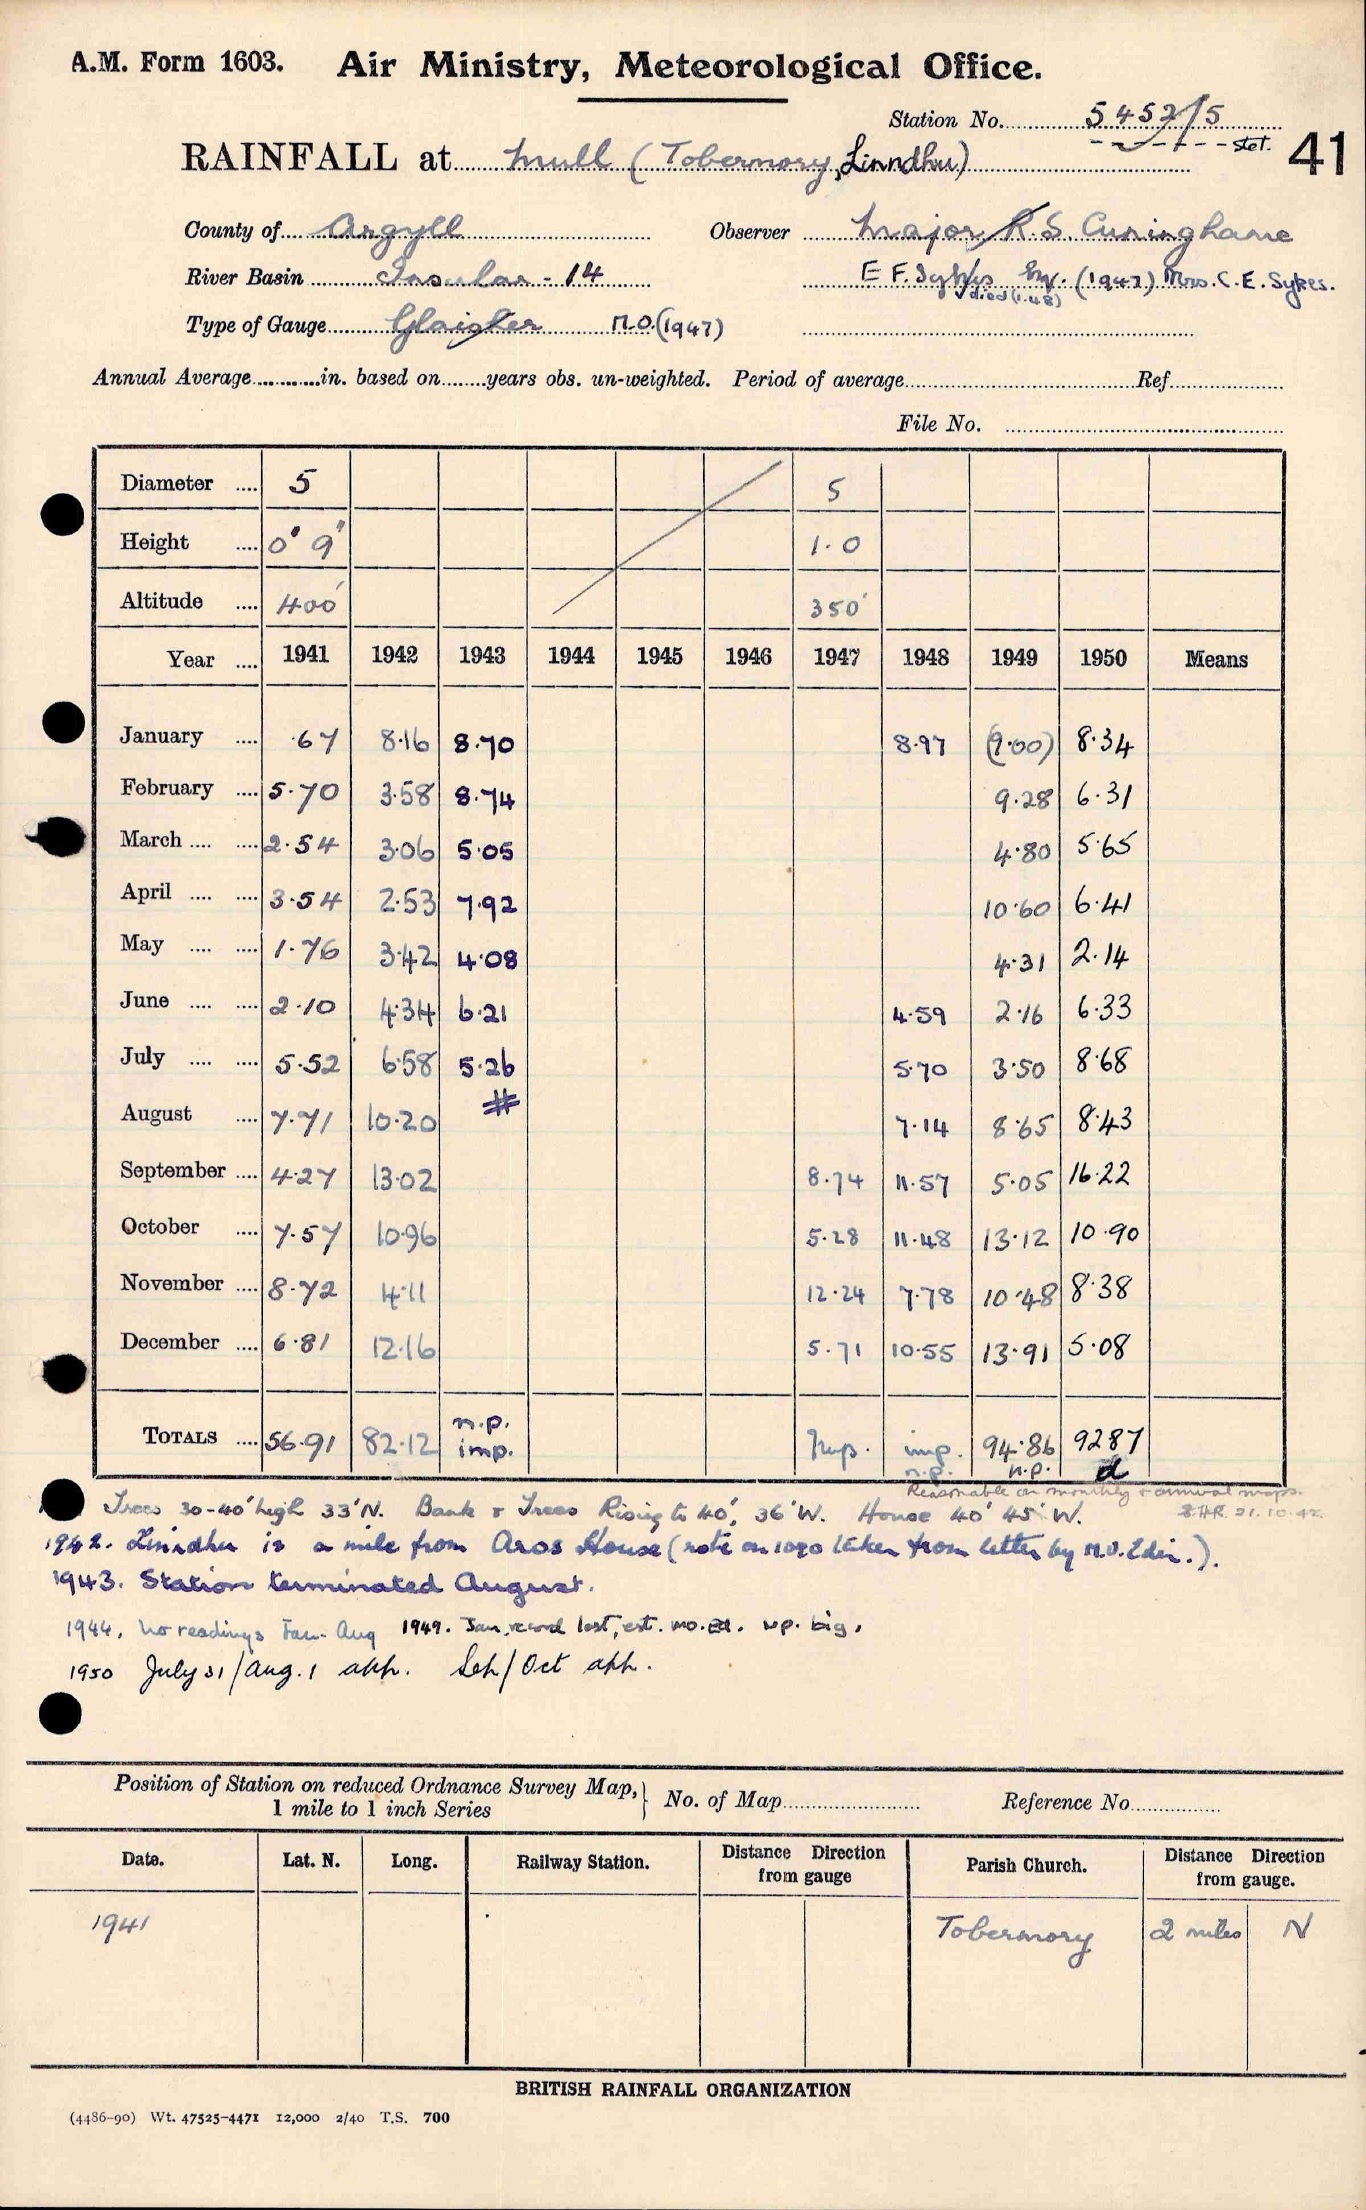 A.M. Form 1603. Air Ministry, Meteorological Office.
Station No. 5452/5
stet.
41
RAINFALL at Mull (Tobermory, Linndhu)
County of Argyll Observer Major R.S. Cuninghame
River Basin Insular - 14 E F. Sykes (1947) Mrs. C. E. Sykes.
died (1.48)
Type of Gauge Glaisher M.O. (1947)
Annual Average in. based on years obs. un-weighted. Period of average Ref
File No.
Diameter 5 5
Height 0' 9" 1.0
Altitude 400' 350'
Year 1941 1942 1943 1944 1945 1946 1947 1948 1949 1950 Means
January .67 8.16 8.70 8.97 (9.00) 8.34
February 5.70 3.58 8.74 9.28 6.31
March 2.54 3.06 5.05 4.80 5.65
April 3.54 2.53 7.92 10.60 6.41
May 1.76 3.42 4.08 4.31 2.14
June 2.10 4.34 6.21 4.59 2.16 6.33
July 5.52 6.58 5.26 5.70 3.50 8.68
August 7.71 10.20 # 7.14 8.65 8.43
September 4.27 13.02 8.74 11.57 5.05 16.22
October 7.57 10.96 5.28 11.48 13.12 10.90
November 8.72 4.11 12.24 7.78 10.48 8.38
December 6.81 12.16 5.71 10.55 13.91 5.08
TOTALS 56.91 82.12 n.p. imp. imp. imp. n.p. 94.86 n.p. 92.87 d
Reasonable on monthly & annual maps.
21.10.42.
Trees 30-40' high 33' N. Bank & Trees Rising to 40', 36' W. House 40' 45' W.
1942. Linndhu is a mile from Aros House (note on 1090 taken from letter by M.O. Edin.).
1943. Station terminated August.
1944. No readings Jan - Aug 1949. Jan. record lost, est. M.O. Ed. n.p. big.
1950 July 31/Aug. 1 app. Sep/Oct app.
Position of Station on reduced Ordnance Survey Map, 1 mile to 1 inch Series } No. of Map Reference No
Date. Lat. N. Long. Railway Station. Distance Direction from gauge Parish Church. Distance Direction from gauge.
1941 Tobermory 2 miles N
BRITISH RAINFALL ORGANIZATION
(4486-90) Wt. 47525-4471 12,000 2/40 T.S. 700